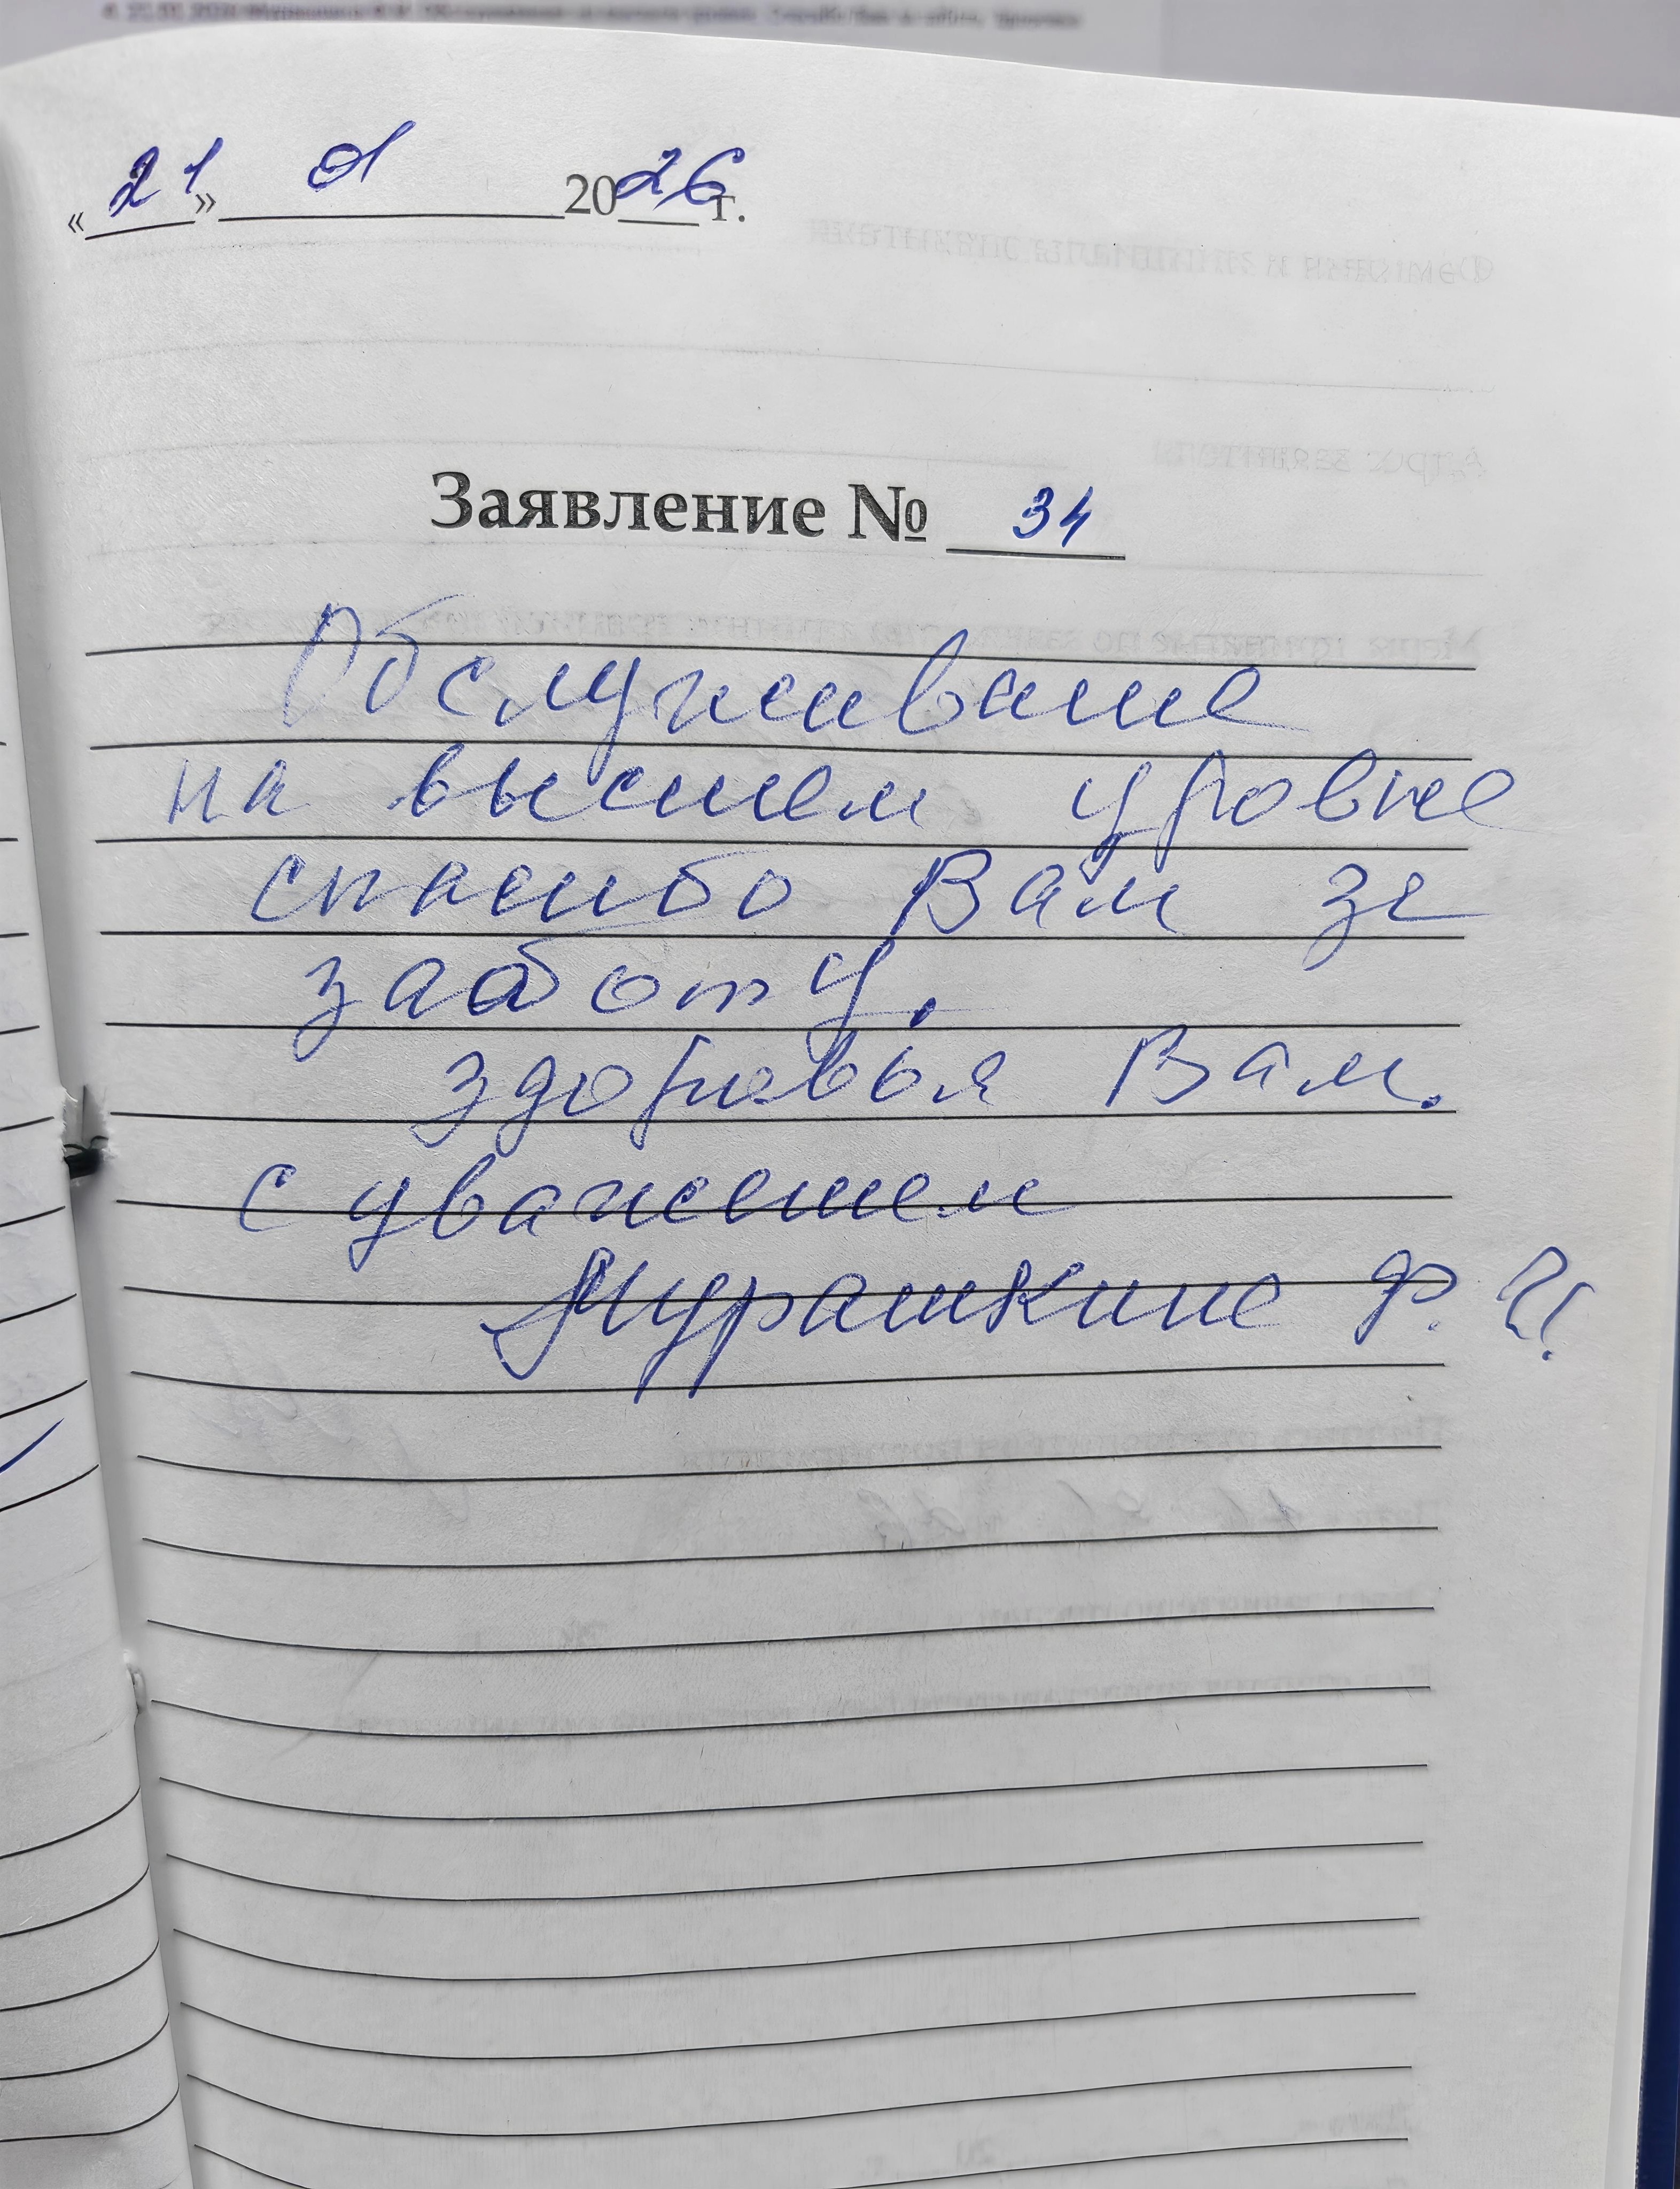 «21» 01 2026 г.
Заявление № 34
Обслуживание
на высшем уровне
спасибо Вам за
заботу.
здоровья Вам.
с уважением
Мурашкина Ф. И.